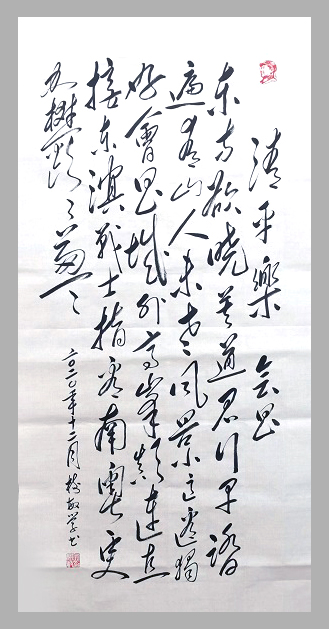 清平樂 会昌
东方欲晓莫道君行早踏
遍青山人未老风景这邊獨
好會昌城外高峰颠连直
接东溟战士指看南粤更
加鬱々葱々
二〇二〇年十二月 敏学书